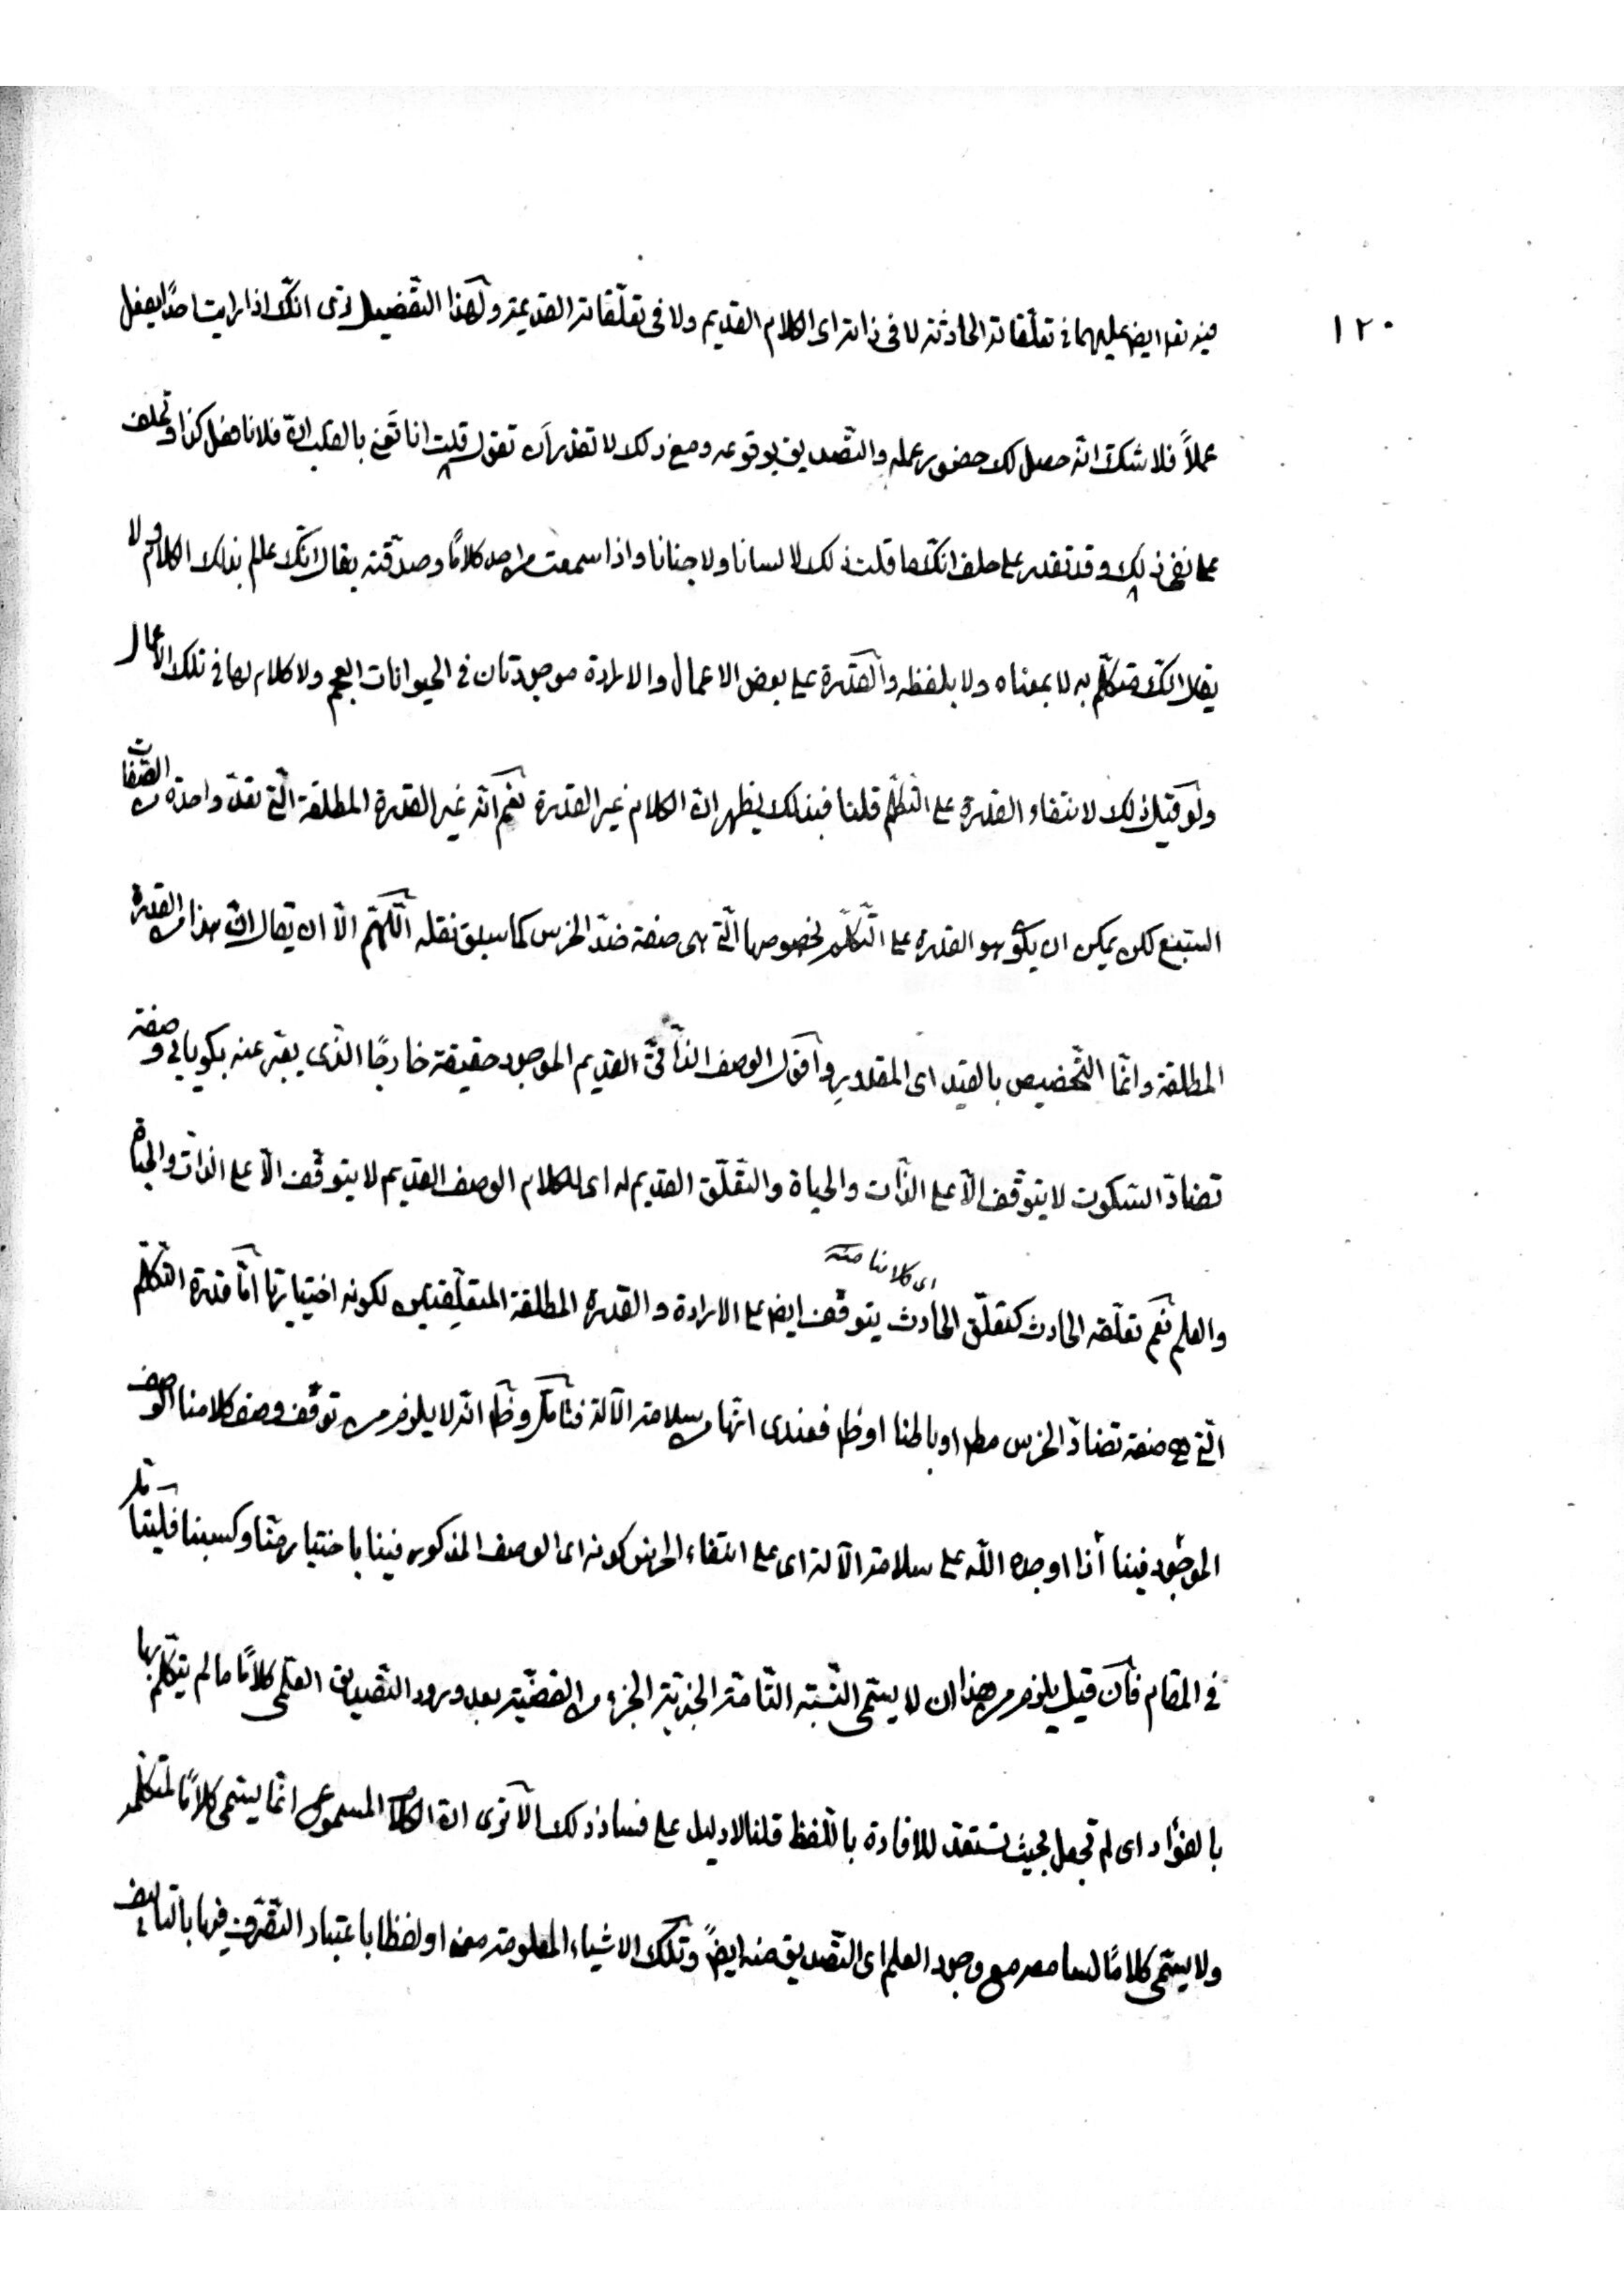 ١٢٠
فيه تعم ايض عليهما في تعلّقاته الحادثة لا في ذاته اى الكلام القديم ولا في تعلّقاته القديمة ولهذا التفصيل ترى انّك اذا رايت احدًا يفعل
عملاً فلا شكّ انّه حصل لك حضور عمله والتّصديق بوقوعه ومع ذلك لا تقدر ان تقول قلت انا نفسى بالقلب انّ فلانا فعل كذا وتحلف
على نفى ذلك وقد تقدر على حلف انّك ما قلت ذلك لا لسانا ولا جنانا واذا سمعت من احد كلامًا وصدّقته يقال انّك عالم بذلك الكلام ولا
يقال انّك متكلّم به لا بمعناه ولا بلفظه والقدرة على بعض الاعمال والارادة موجودتان في الحيوانات العجم ولا كلام لها في تلك الاعمال
ولو قيل ذلك لانتفاء القدرة على التكلّم قلنا فبذلك يظهر انّ الكلام غير القدرة نعم انّه غير القدرة المطلقة الّتى تعدّ واحدة من الصّفات
السّبع لكن يمكن ان يكون هو القدرة على التّكلّم بخصوصها الّتى هى صفة ضدّ الخرس كما سبق نقله اللّهمّ الّا ان يقال انّ هذا من القدرة
المطلقة وانّما التّخصيص بالقيد اى المقدور واقول الوصف الذّاتىّ القديم الموجود حقيقة خارجًا الّذى يعبّر عنه بكويايى وصفة
تضادّ السّكوت لا يتوقّف الّا على الذّات والحياة والتّعلّق القديم له اى للكلام الوصف القديم لا يتوقّف الّا على الذّات والحياة
اى كلامنا منه
والعلم نعم تعلّقه الحادث كتعلّق الحادث يتوقّف ايض على الارادة والقدرة المطلقة المتعلّقتين لكونه اختياريّا امّا قدرة التّكلّم
الّتى هى صفة تضادّ الخرس مطم او باطنا او ظم فعندى انّها من سلامة الآلة فتأمّل وظم انّه لا يلزم من توقّف وصف كلامنا الوصف
الموجود فينا اذا اوجده اللّه على سلامة الآلة اى على انتفاء الخرس كونه اى الوصف المذكور فينا باختيار منّا وكسبنا فليتأمّل
في المقام فان قيل يلزم من هذا ان لا يسمّى النّسبة التّامّة الخبريّة الجزء من القضيّة بعد ورود التّصديق العلمى كلامًا ما لم يتكلّم بها
بالفؤاد اى لم تجعل بحيث تستعدّ للافادة باللّفظ قلنا لا دليل على فساد ذلك الا ترى انّ الكلام المسموع انّما يسمّى كلامًا لمتكلّمه
ولا يسمّى كلامًا لسامعه مع وجود العلم اى التّصديق منه ايضً وتلك الاشياء المعلومة معنى او لفظا باعتبار التّصرّف فيها بالتأليف